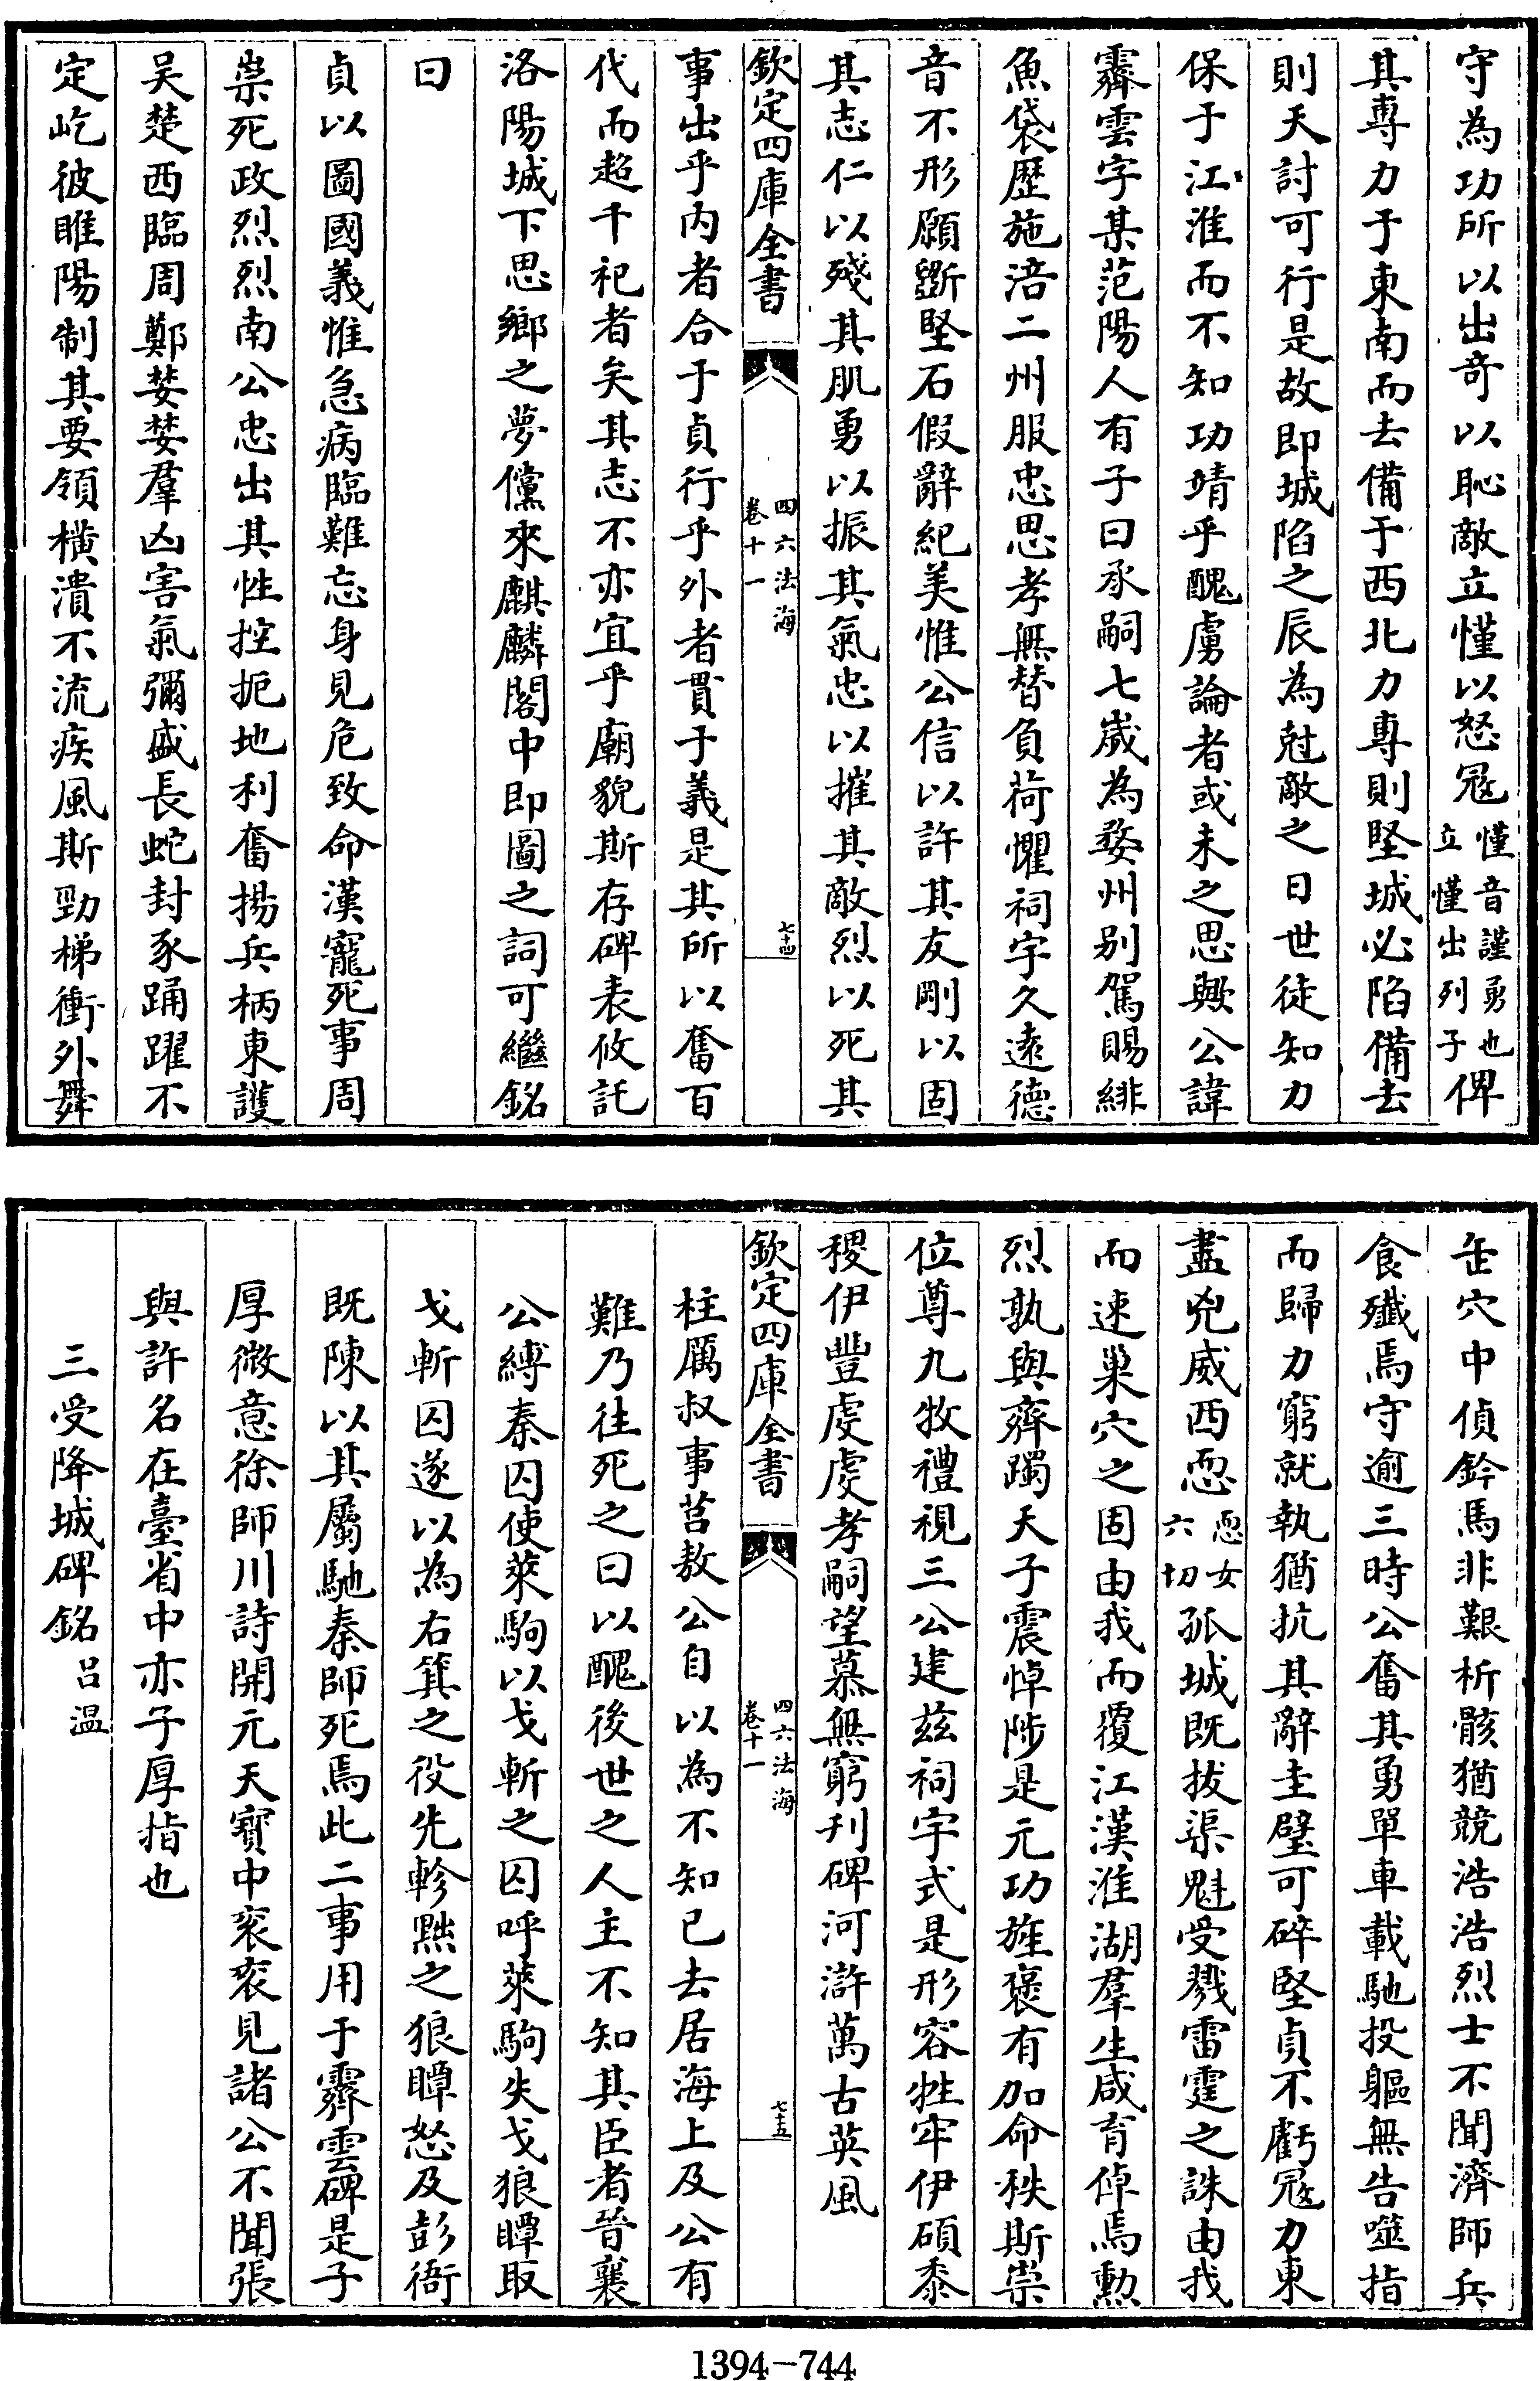 守為功所以出奇以恥敵立慬以怒冦慬音謹勇也立慬出列子俾
其專力于東南而去備于西北力專則堅城必陷備去
則天討可行是故即城陷之辰為尅敵之日世徒知力
保于江淮而不知功靖乎醜虜論者或未之思歟公諱
霽雲字某范陽人有子曰承嗣七歲為婺州别駕賜緋
魚袋歷施涪二州服忠思孝無替負荷懼祠宇久遠德
音不形願斵堅石假辭紀美惟公信以許其友剛以固
其志仁以殘其肌勇以振其氣忠以摧其敵烈以死其
欽定四庫全書
四六法海
卷十一
七十四
事出乎内者合于貞行乎外者貫于義是其所以奮百
代而超千祀者矣其志不亦宜乎廟貌斯存碑表攸託
洛陽城下思鄉之夢儻來麒麟閣中即圖之詞可繼銘
曰
貞以圖國義惟急病臨難忘身見危致命漢寵死事周
崇死政烈烈南公忠出其性控扼地利奮揚兵柄東護
吴楚西臨周鄭婪婪羣凶害氣彌盛長蛇封豕踊躍不
定屹彼睢陽制其要領横潰不流疾風斯勁梯衝外舞
缶穴中偵鈐馬非艱析骸猶競浩浩烈士不聞濟師兵
食殲焉守逾三時公奮其勇單車載馳投軀無告噬指
而歸力窮就執猶抗其辭圭璧可碎堅貞不虧冦力東
盡兇威西恧恧女六切孤城既拔渠魁受戮雷霆之誅由我
而速巢穴之固由我而覆江漢淮湖羣生咸育倬焉勲
烈孰與齊躅天子震悼陟是元功旌褒有加命秩斯崇
位尊九牧禮視三公建兹祠宇式是形容牲牢伊碩黍
稷伊豐虔虔孝嗣望慕無窮刋碑河滸萬古英風
欽定四庫全書
四六法海
卷十一
七十五
柱厲叔事莒敖公自以為不知已去居海上及公有
難乃往死之曰以醜後世之人主不知其臣者晉襄
公縛秦囚使萊駒以戈斬之囚呼萊駒失戈狼瞫取
戈斬囚遂以為右箕之役先軫黜之狼瞫怒及彭衙
既陳以其屬馳秦師死焉此二事用于霽雲碑是子
厚微意徐師川詩開元天寶中衮衮見諸公不聞張
與許名在臺省中亦子厚指也
三受降城碑銘 吕温
1394-744